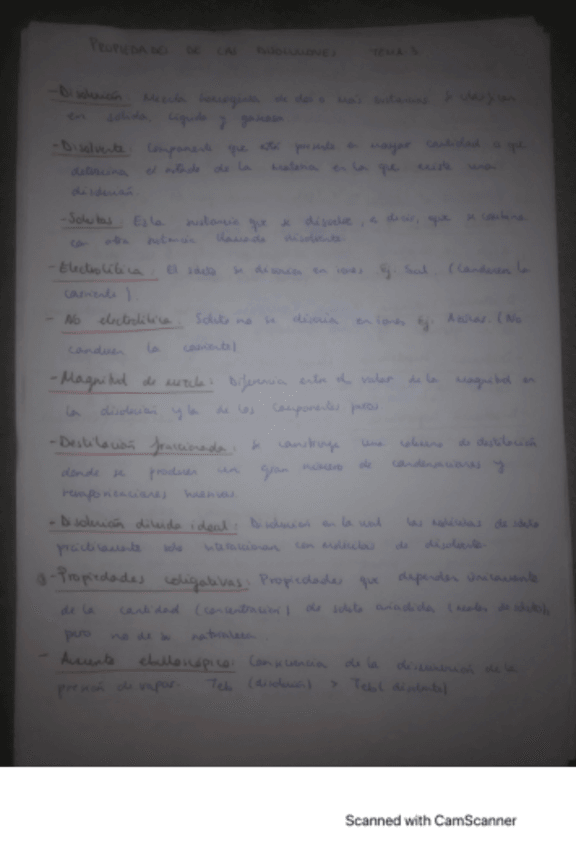 PROPIEDADES DE LAS DISOLUCIONES TEMA 3
- Disolución: Mezcla homogénea de dos o más sustancias. Se clasifican
en sólida, líquida y gaseosa.
- Disolvente: Componente que está presente en mayor cantidad o que
determina el estado de la materia en la que existe una
disolución.
- Solutos: Es la sustancia que se disuelve, es decir, que se combina
con otra sustancia llamada disolvente.
- Electrolítica: El soluto se disocia en iones Ej. Sal. (Conducen la
corriente).
- No electrolítica: Soluto no se disocia en iones Ej. Azúcar. (No
conducen la corriente)
- Magnitud de mezcla: Diferencia entre el valor de la magnitud en
la disolución y la de los componentes puros
- Destilación fraccionada: Se construye una columna de destilación
donde se producen un gran número de condensaciones y
- Disolución diluida ideal: Disolución en la cual las moléculas de soluto
prácticamente solo interaccionan con moléculas de disolvente.
- Propiedades coligativas: Propiedades que dependen únicamente
de la cantidad (concentración) de soluto añadida
pero no de su naturaleza.
- Aumento ebulloscópico: Consecuencia de la disminución de la
presión de vapor. Teb (disolución) > Teb (disolvente)
Scanned with CamScanner